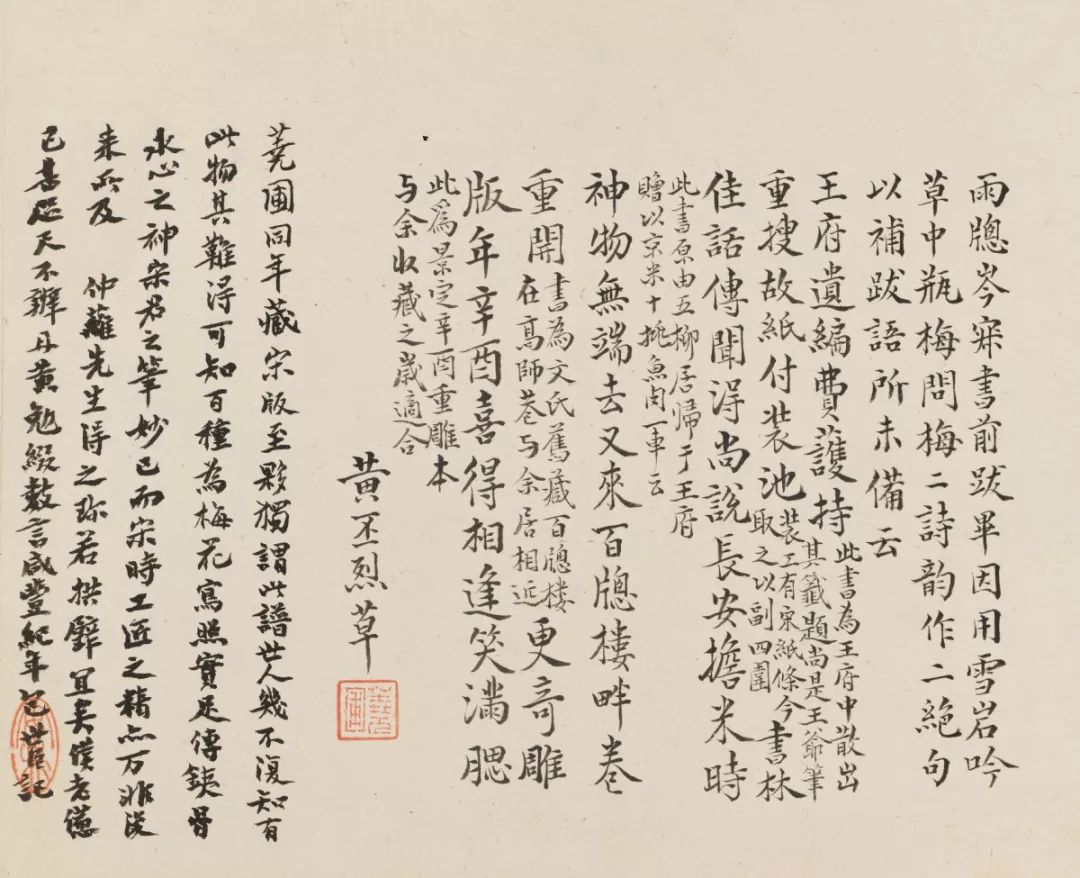 雨牕岑寂書前跋畢因用雪岩吟
草中瓶梅問梅二詩韵作二絶句
以補跋語所未備云
王府遺編費護持此書為王府中散出其籤題尚是王爺筆
重搜故紙付裝池装工有宋紙條今取之以副四圍書林
佳話傳聞淂尚說長安擔米時
此書原由五柳居歸于王府
贈以京米十挑魚肉一車云
神物無端去又來百牕樓畔卷
重開書為文氏舊藏百牕樓在髙師巷与余居相近更奇雕
版年辛酉喜得相逢笑滿腮
此為景定辛酉重雕本
与余收藏之歲適合
黃丕烈草
蕘圃同年藏宋版至夥獨謂此譜世人幾不復知有
此物其難淂可知百種為梅花寫照實足傳鉄骨
冰心之神宋君之筆妙已而宋時工匠之精亦万非後
来所及 仲先生淂之珎若拱璧宜矣僕老憊
已甚天不辦丹黃勉綴数言咸豐紀年包世臣記